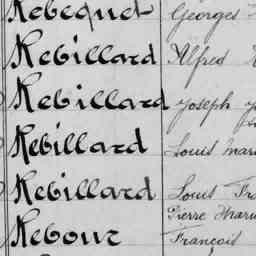 Rebequet Georges
Rebillard Alfred
Rebillard Joseph
Rebillard Louis Marie
Rebillard Louis
Pierre Marie
Rebour François